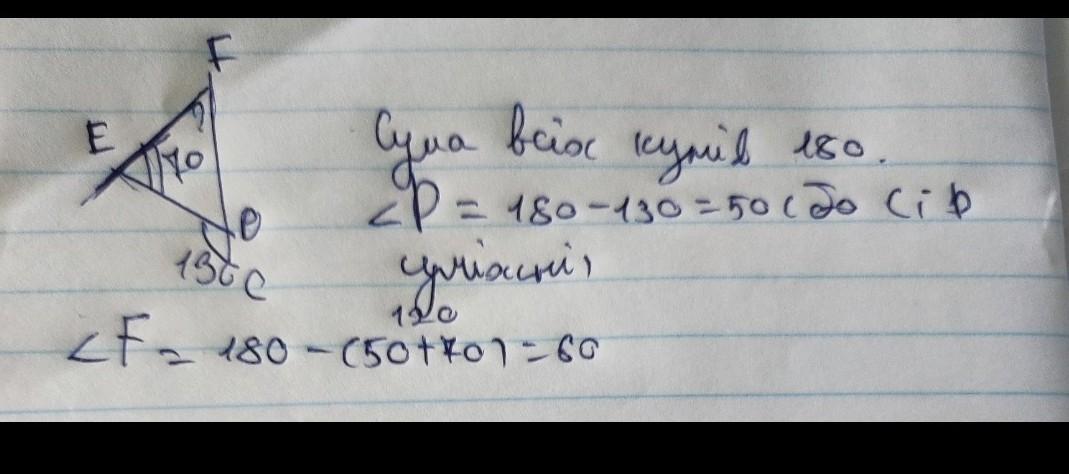 F
E
70
D
130
C
Сума всіх кутів 180.
∠D = 180 - 130 = 50 (до C i D
суміжні)
120
∠F = 180 - (50 + 70) = 60